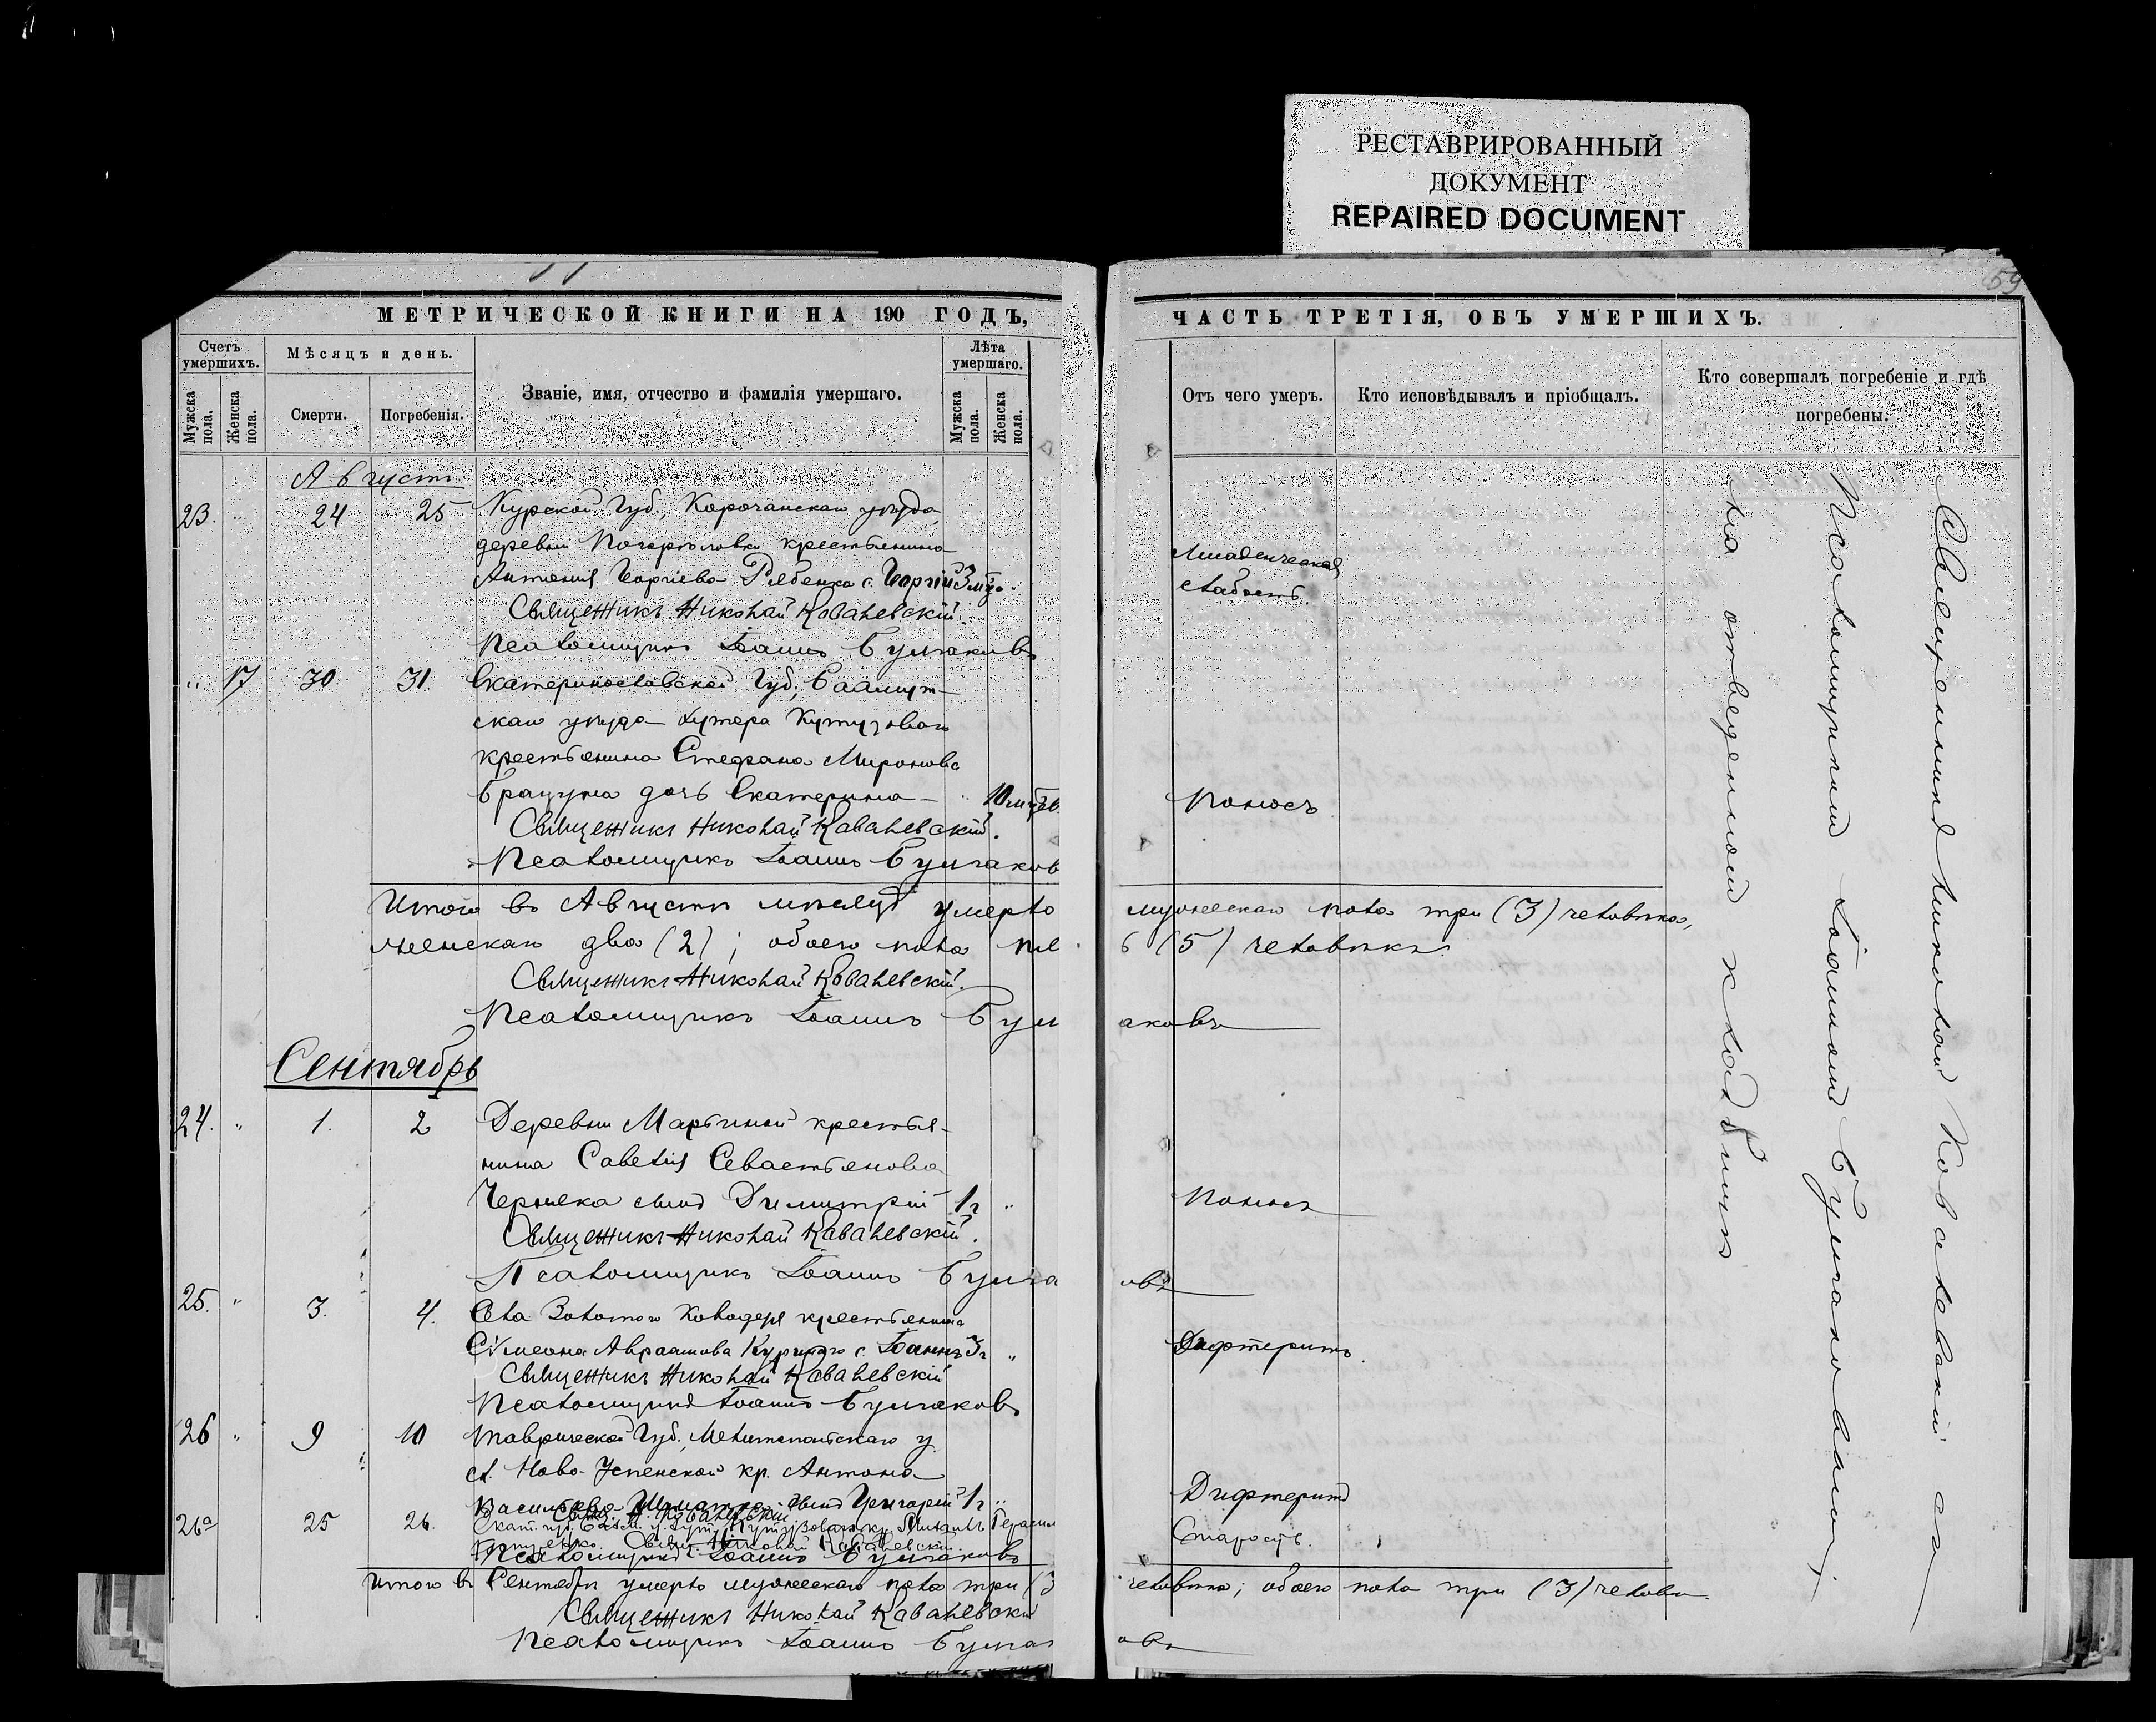 РЕСТАВРИРОВАННЫЙ
ДОКУМЕНТ
REPAIRED DOCUMENT
59
МЕТРИЧЕСКОЙ КНИГИ НА 190 ГОДЪ,
Счетъ умершихъ.
Мужска пола.
Женска пола.
Мѣсяцъ и день.
Смерти.
Погребенія.
Званіе, имя, отчество и фамилія умершаго.
Лѣта умершаго.
Мужска пола.
Женска пола.
Августъ
23. " 24 25 Курской Губ., Корочанскаго уѣзда,
деревни крестьянина
Антонія Георгіева с. Георгій 3 мѣс.
Священникъ Николай Ковалевскій.
Псаломщикъ Іоаннъ Булгаковъ
" 17 30. 31. Екатеринославской Губ., Бахмут-
скаго уѣзда хутора Кутузоваго
крестьянина Стефана Миронова
дочь Екатерина " 10 мѣсев.
Священникъ Николай Ковалевскій.
Псаломщикъ Іоаннъ Булгаков
Итого въ Августѣ мѣсяцѣ умерло
женскаго два (2); обоего пола пя
Священникъ Николай Ковалевскій.
Псаломщикъ Іоаннъ Бул
Сентябрь
24. " 1. 2 Деревни Марьиной крестья-
нина Савелія Севастьянова
Черняка сынъ Димитрій 1 г "
Священникъ Николай Ковалевскій.
Псаломщикъ Іоаннъ Булга
25. " 3. 4. Села Золотого Колодезя крестьянина
Сѵмеона Авраамова с. Іоаннъ 3 г "
Священникъ Николай Ковалевскій
Псаломщикъ Іоаннъ Булгаковъ
26 " 9 10 Таврической Губ., Мелитопольскаго у.
сл. Ново-Успенской кр. Антона
Васильева сынъ Григорій 1 г "
Свящ. Н. Ковалевскій
26а 25 26. Екат. губ. Бахм. у. хут. Кутузоваго кр. Михаилъ Герасим
Свящ. Николай Ковалевскій.
Псаломщикъ Іоаннъ Булгаковъ
Итого въ Сентябрѣ умерло мужескаго пола три (3
Священникъ Николай Ковалевскій
Псаломщикъ Іоаннъ Булгак
ЧАСТЬ ТРЕТІЯ, ОБЪ УМЕРШИХЪ.
Отъ чего умеръ.
Кто исповѣдывалъ и пріобщалъ.
Кто совершалъ погребеніе и гдѣ погребены.
Младенческая
слабость.
Поносъ
мужескаго пола три (3) человѣка,
ь (5) человѣкъ.
аковъ
Поносъ
овъ
Дифтеритъ.
Дифтеритъ
Старость.
человѣка; обоего пола три (3) человѣ
овъ
Священникъ Николай Ковалевскій съ
Псаломщикомъ Іоанномъ Булгаковымъ,
на отведенномъ кладбищѣ